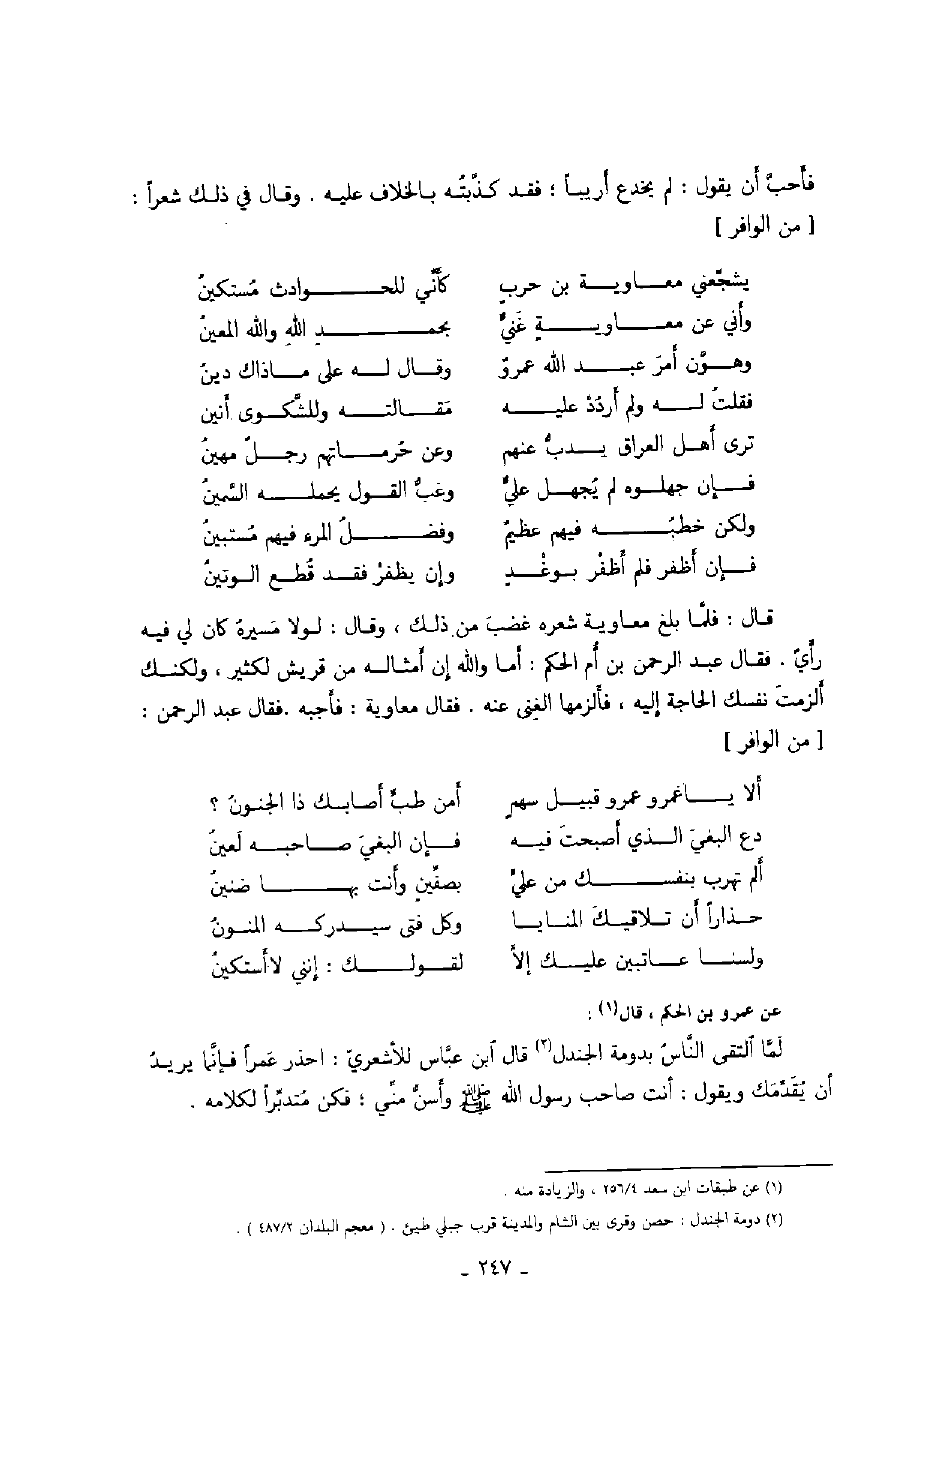 فأحبَّ أن يقول : لم يخدع أريباً ؛ فقد كذَّبتُه بالخلاف عليه . وقال في ذلك شعراً :
[ من الوافر ]
يشجّعني معاوية بن حربٍ كأنّي للحوادث مُستكينُ
وأني عن معاويةٍ غَنيٌّ بحمدِ اللهِ والله المعينُ
وهوَّن أمرَ عبد الله عمروٌ وقال له على ماذاك دينُ
فقلتُ له ولم أردُدْ عليه مَقالته وللشَّكوى أنين
ترى أهل العراق يدبُّ عنهم وعن حُرماتهم رجلٌ مهينُ
فإن جهلوه لم يُجهل عليٌّ وغبُّ القول يحمله السَّمينُ
ولكن خطبُه فيهم عظيمٌ وفضلُ المرء فيهم مُستبينُ
فإن أظفر فلم أظفْر بوغْدٍ وإن يظفرْ فقد قُطع الوتينُ
قال : فلمَّا بلغ معاوية شعره غضبَ من ذلك ، وقال : لولا مَسيرهُ كان لي فيه
رأيٌ . فقال عبد الرحمن بن أم الحكم : أما والله إن أمثاله من قريش لكثير ، ولكنك
ألزمتَ نفسك الحاجة إليه ، فألزمها الغِنى عنه . فقال معاوية : فأجبه .فقال عبد الرحمن :
[ من الوافر ]
ألا ياعمرو عمرو قبيل سهمٍ أمن طبٍّ أصابك ذا الجنونُ ؟
دع البغيَ الذي أصبحتَ فيه فإن البغيَ صاحبه لَعينُ
ألم تهرب بنفسك من عليٍّ بصفِّينٍ وأنت بها ضنينُ
حذاراً أن تلاقيكَ المنايا وكل فتى سيدركه المنونُ
ولسنا عاتبين عليك إلاَّ لقولك : إنني لاأستكينُ
عن عمرو بن الحكم ، قال(١) :
لَمَّا ٱلتقى النَّاسُ بدومة الجندل(٢) قال ٱبن عبَّاس للأشعريّ : احذر عَمراً فإنَّما يريدُ
أن يُقَدِّمَك ويقول : أنت صاحب رسول الله ﷺ وأسنُّ منّي ؛ فكن مُتدبِّراً لكلامه .
(١) عن طبقات ابن سعد ٢٥٦/٤ ، والزيادة منه .
(٢) دومة الجندل : حصن وقرى بين الشام والمدينة قرب جبلي طيئ . ( معجم البلدان ٤٨٧/٢ ) .
ـ ٢٤٧ ـ